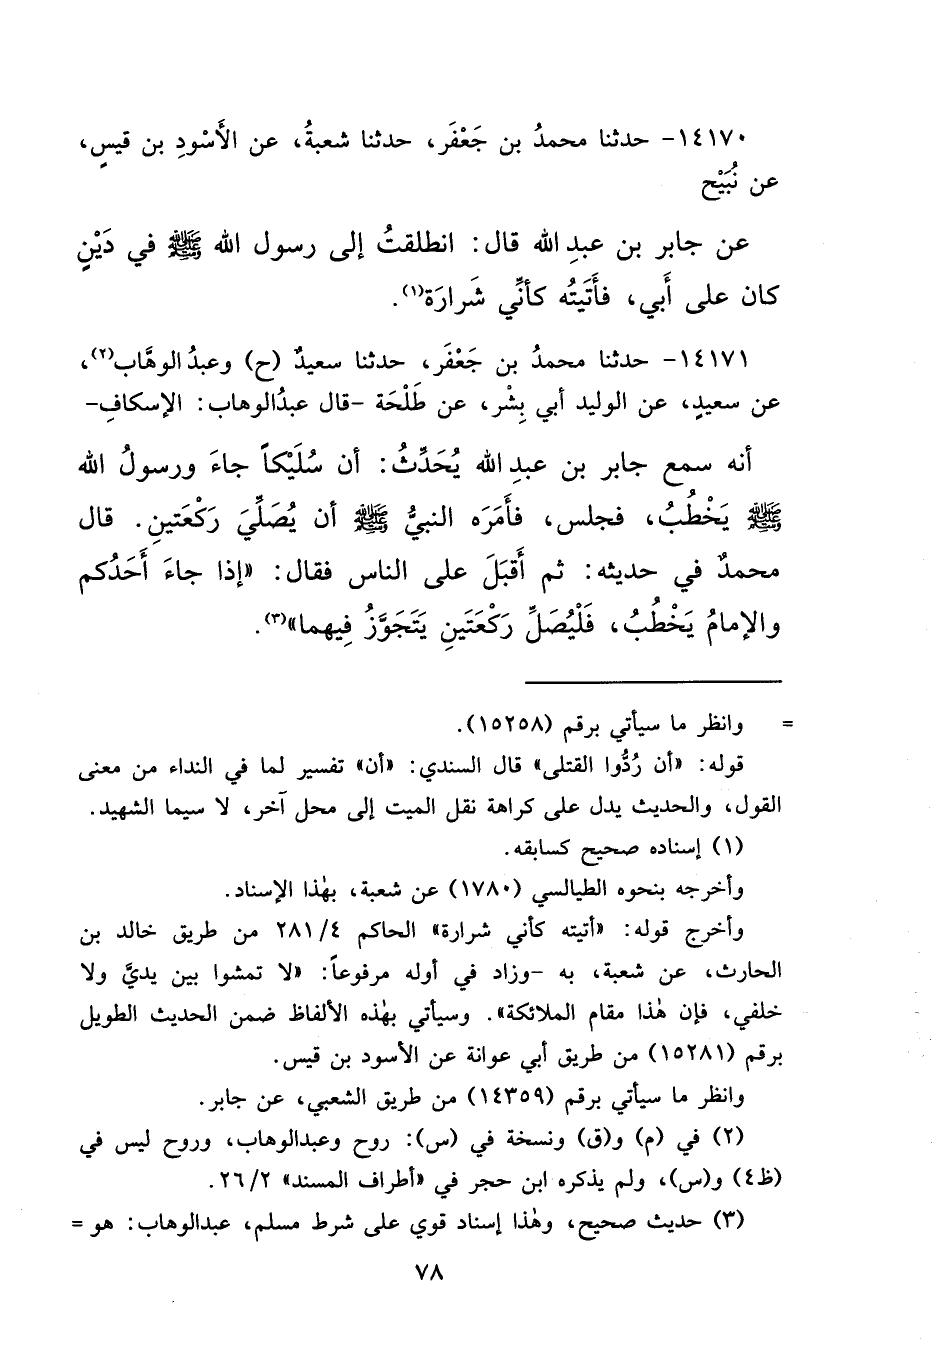 ١٤١٧٠- حدثنا محمدُ بن جَعْفَر، حدثنا شعبةُ، عن الأَسْودِ بن قيسٍ،
عن نُبَيْح
عن جابر بن عبدِ الله قال: انطلقتُ إلى رسول الله ﷺ في دَيْنٍ
كان على أَبي، فأَتَيتُه كأنِّي شَرارَة(١).
١٤١٧١- حدثنا محمدُ بن جَعْفَر، حدثنا سعيدٌ (ح) وعبدُ الوهَّاب(٢)،
عن سعيدٍ، عن الوليد أبي بِشْر، عن طَلْحَة -قال عبدُالوهاب: الإسكافِ-
أنه سمع جابر بن عبدِ الله يُحَدِّثُ: أن سُلَيْكاً جاءَ ورسولُ الله
ﷺ يَخْطُبُ، فجلس، فأَمَرَه النبيُّ ﷺ أن يُصَلِّيَ رَكْعَتينِ. قال
محمدٌ في حديثه: ثم أَقبَلَ على الناس فقال: «إذا جاءَ أَحَدُكم
والإمامُ يَخْطُبُ، فَلْيُصَلِّ رَكْعَتَينِ يَتَجَوَّزُ فِيهما»(٣).
= وانظر ما سيأتي برقم (١٥٢٥٨).
قوله: «أن رُدُّوا القتلى» قال السندي: «أن» تفسير لما في النداء من معنى
القول، والحديث يدل على كراهة نقل الميت إلى محل آخر، لا سيما الشهيد.
(١) إسناده صحيح كسابقه.
وأخرجه بنحوه الطيالسي (١٧٨٠) عن شعبة، بهٰذا الإسناد.
وأخرج قوله: «أتيته كأني شرارة» الحاكم ٢٨١/٤ من طريق خالد بن
الحارث، عن شعبة، به -وزاد في أوله مرفوعاً: «لا تمشوا بين يديَّ ولا
خلفي، فإن هٰذا مقام الملائكة». وسيأتي بهٰذه الألفاظ ضمن الحديث الطويل
برقم (١٥٢٨١) من طريق أبي عوانة عن الأسود بن قيس.
وانظر ما سيأتي برقم (١٤٣٥٩) من طريق الشعبي، عن جابر.
(٢) في (م) و(ق) ونسخة في (س): روح وعبدالوهاب، وروح ليس في
(ظ٤) و(س)، ولم يذكره ابن حجر في «أطراف المسند» ٢٦/٢.
(٣) حديث صحيح، وهٰذا إسناد قوي على شرط مسلم، عبدالوهاب: هو =
٧٨